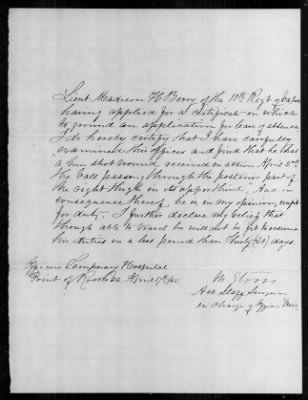 Lieut Madison H Berry of the 11th Regt of
having applied for a certificate on which
to ground an application for leave of absence
I do hereby certify that I have carefully
examined this officer and find that he has
a gun shot wound received in action April 2nd
the ball passing through the posterior part of
the right thigh in its upper third. And in
consequence thereof, he is, in my opinion, unfit
for duty. I further declare my belief that
though able to travel he will not be fit to resume
his duties in a less period than thirty (30) days
Officers Temporary Hospital
Point of Rocks Va. April
Act Staff Surgeon
in charge of